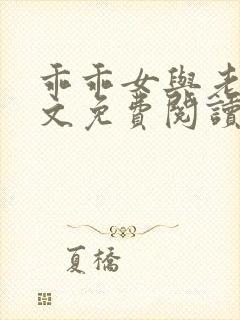 乖乖女與老
文免費閱讀
夏橋